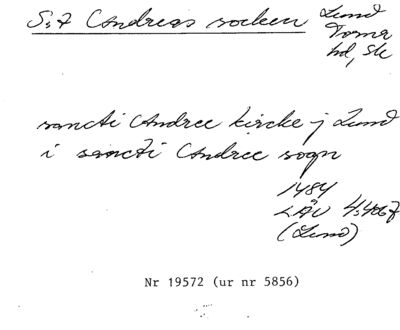 S:t Andreas socken
Lund
Torna
hd, Sk
sancti Andree kircke j Lund
i sancti Andree sogn
1484
LÄU 4:467
(Lund)
Nr 19572 (ur nr 5856)